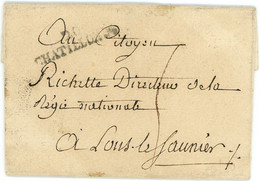 Au Citoyen
CHATILLON
Richette Directeur de la
Régie nationale
À Lons-le-Saunier